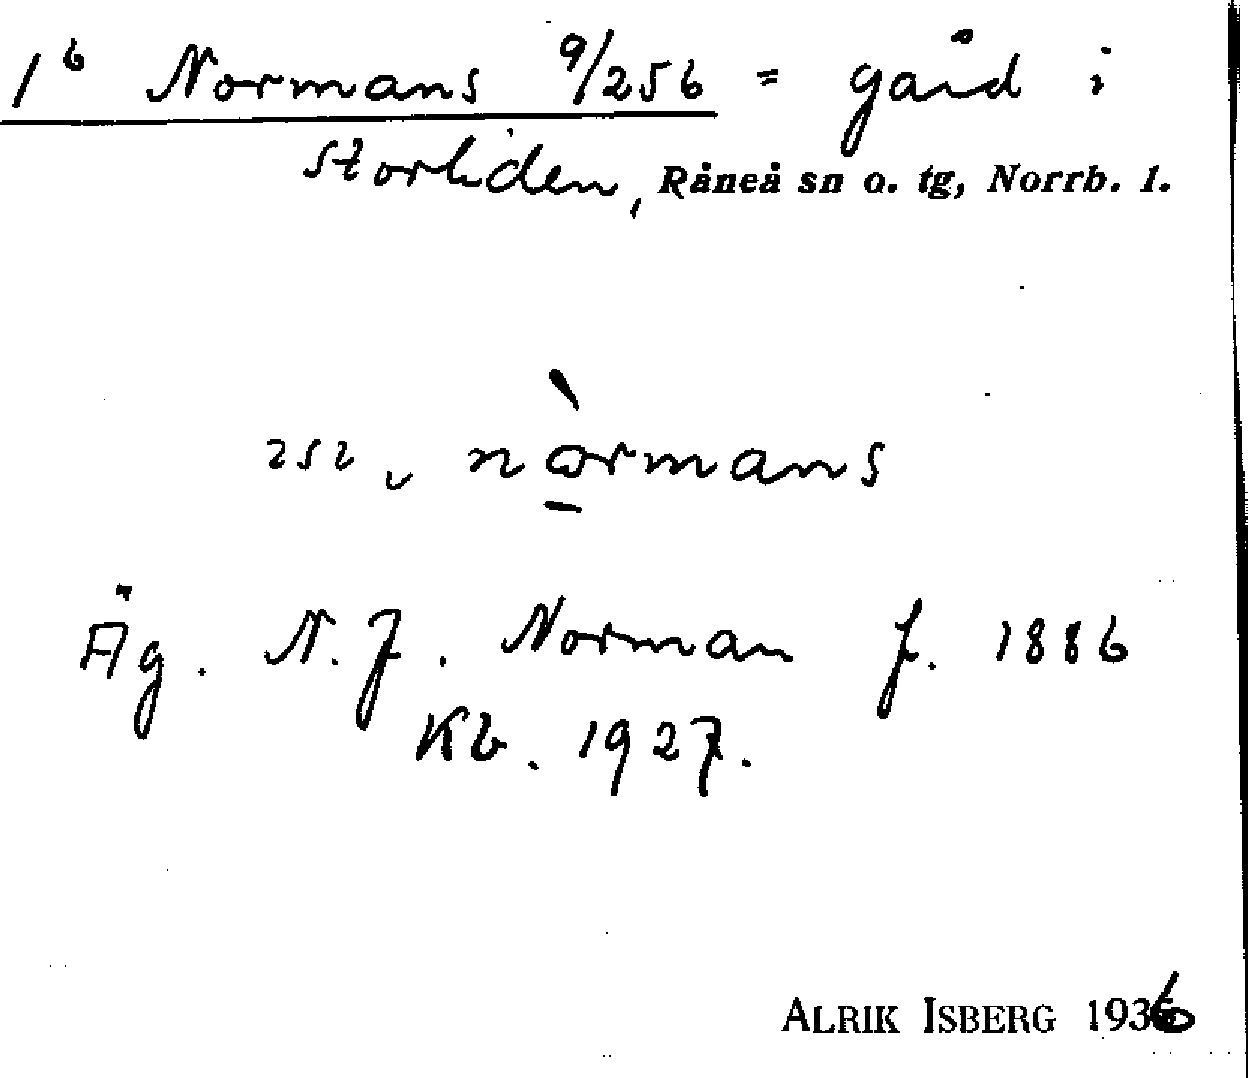 1⁶ Normans 9/256 = gård i
Storliden, Råneå sn o. tg, Norrb. l.
252 ᵥ nòrmans
Äg. N. J. Norman f. 1886
Kb. 1927.
ALRIK ISBERG 1936